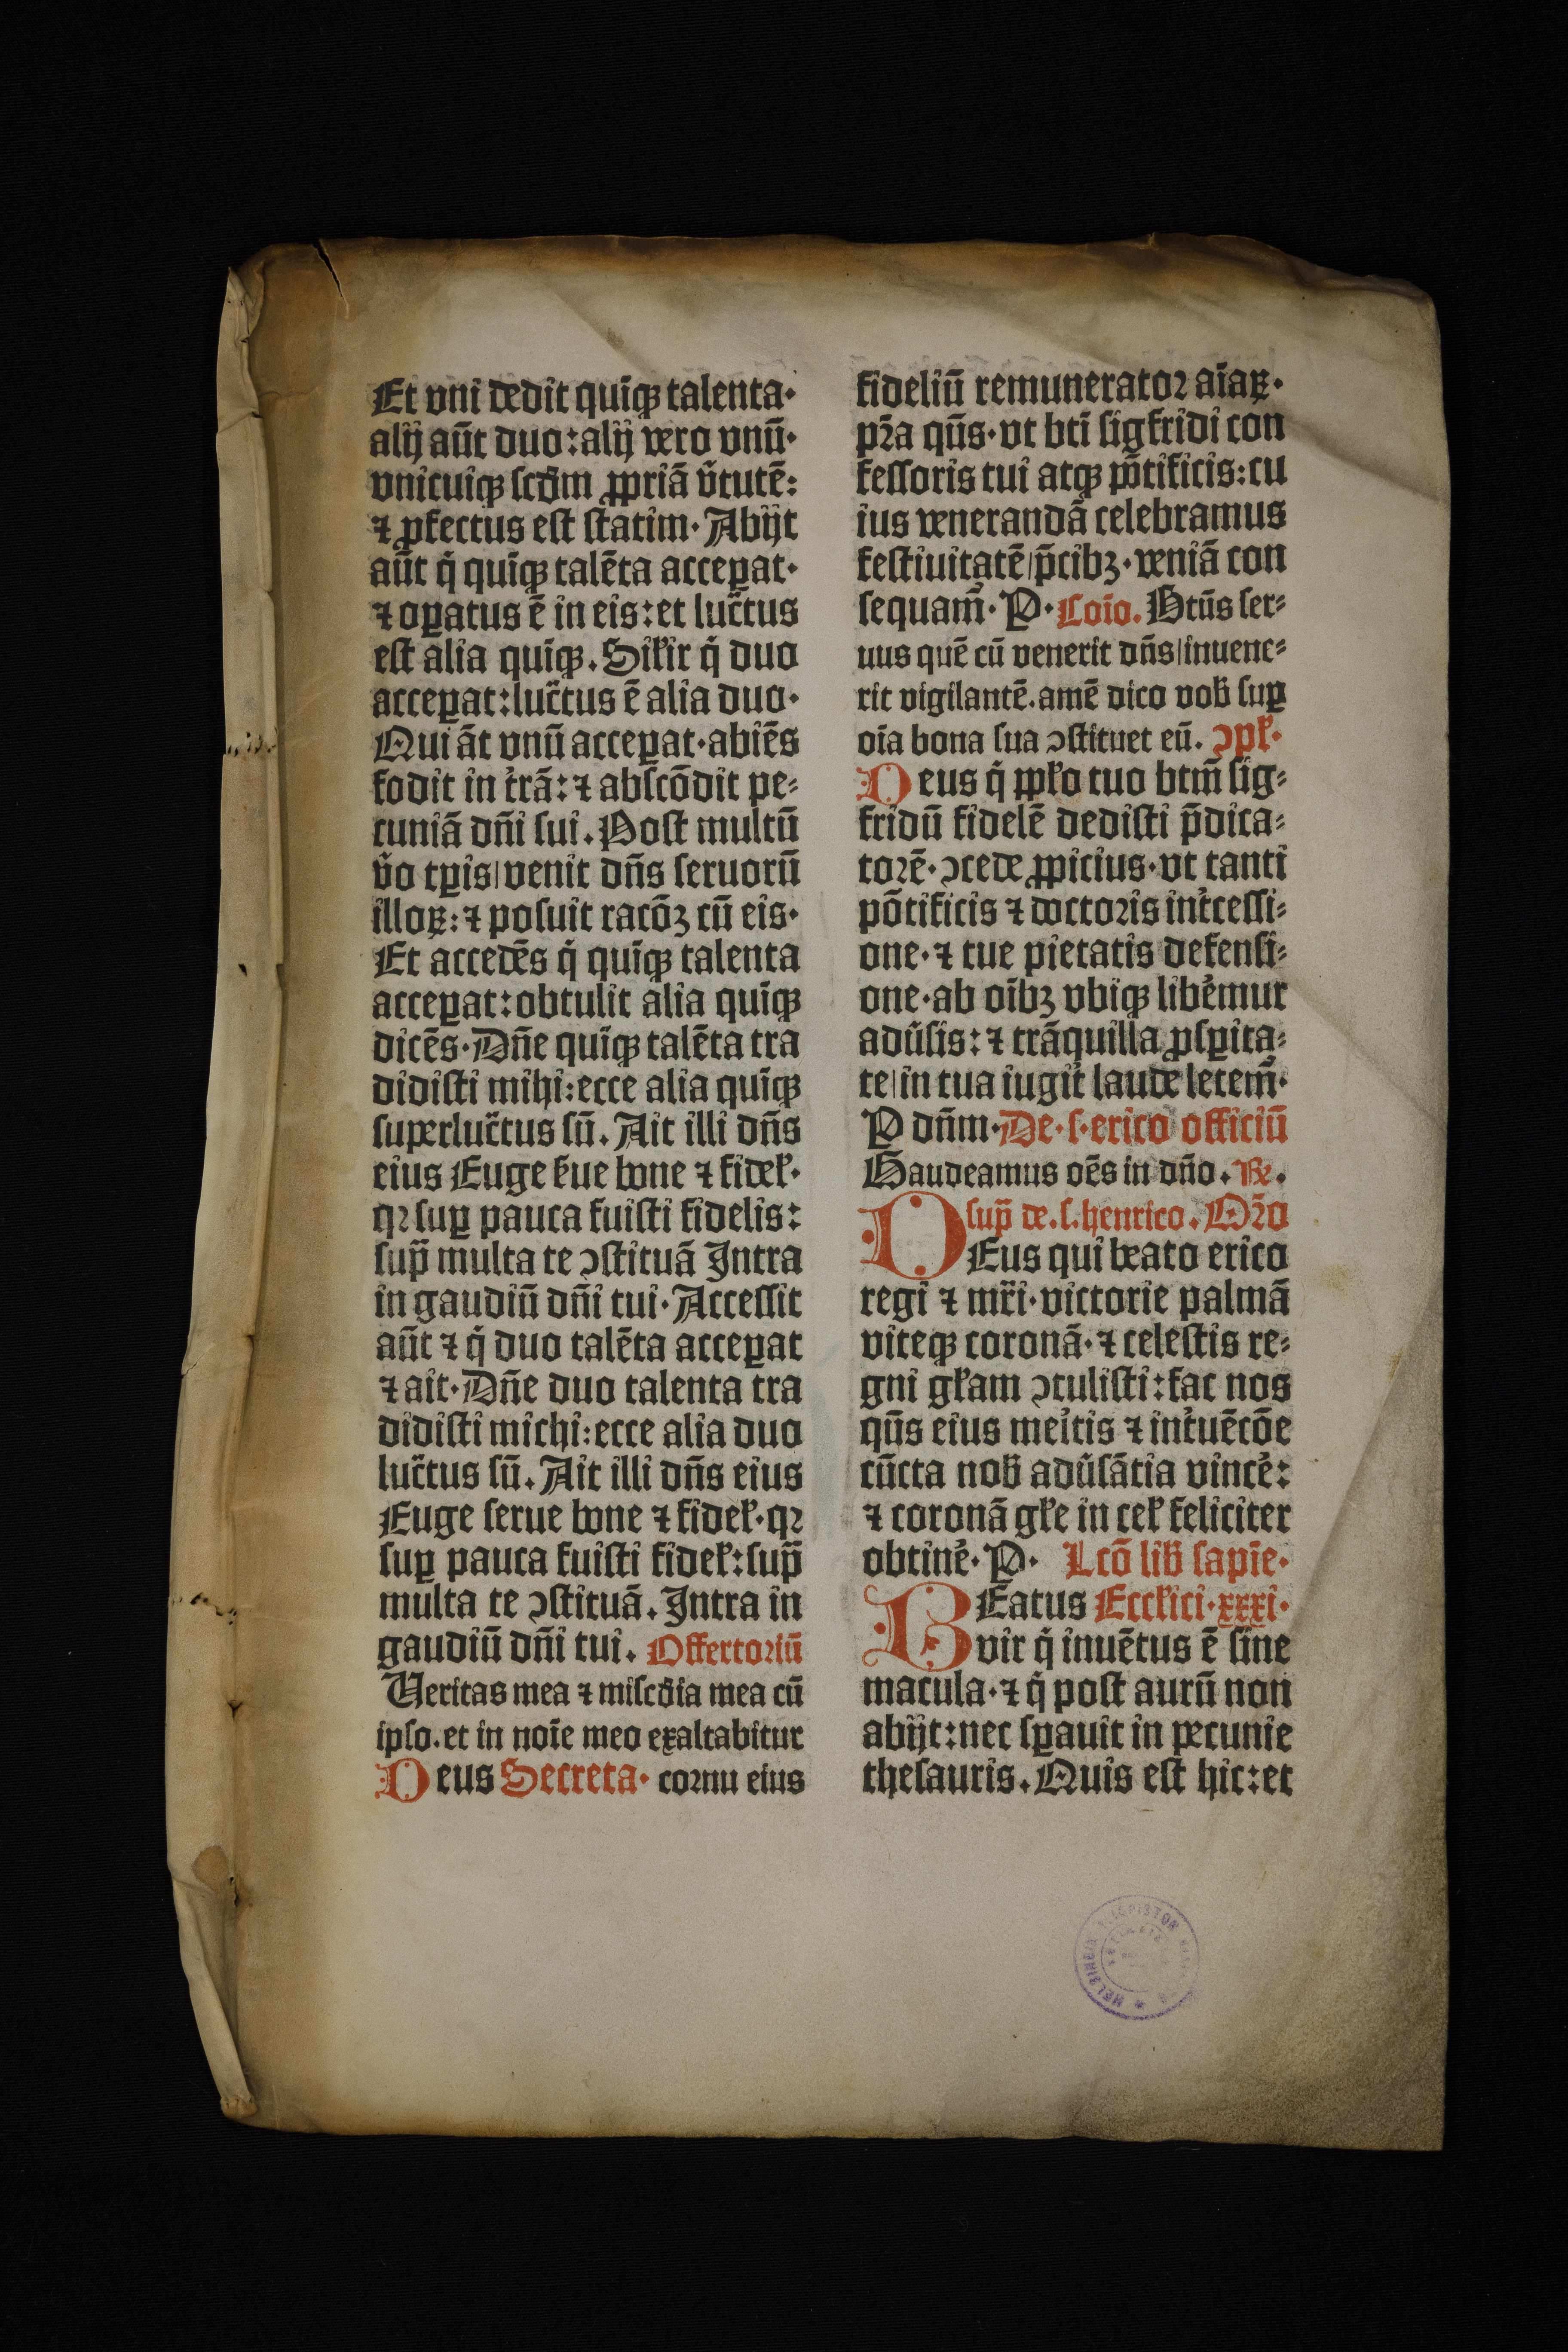 Et vni dedit quīqꝫ talenta·
alij aūt duo: alij vero vnū·
vnicuiqꝫ scdm̄ ꝓpriā v̄tutē:
⁊ ꝓfectus est statim· Abijt
aūt q̇ quīqꝫ talēta acceꝑat·
⁊ oꝑatus ē in eis: et luc̄tus
est alia quīqꝫ. Silꝉr q̇ duo
acceꝑat: luc̄tus ē alia duo·
Qui āt vnū acceꝑat· abiēs
fodit in tr̄ā: ⁊ abscōdit pe⸗
cuniā dn̄i sui. Post multū
v̄o tꝑis/ venit dn̄s seruorū
illoꝝ: ⁊ posuit racōꝫ cū eis·
Et accedēs q̇ quīqꝫ talenta
acceꝑat: obtulit alia quīqꝫ
dicēs· Dn̄e quīqꝫ talēta tra
didisti mihi: ecce alia quīqꝫ
superluc̄tus sū. Ait illi dn̄s
eius Euge ẜue bone ⁊ fidel̛·
qꝛ suꝑ pauca fuisti fidelis:
sup̄ multa te ↄstituā Intra
in gaudiū dn̄i tui· Accessit
aūt ⁊ q̇ duo talēta acceꝑat
⁊ ait· Dn̄e duo talenta tra
didisti michi: ecce alia duo
luc̄tus sū. Ait illi dn̄s eius
Euge serue bone ⁊ fidel̛· qꝛ
suꝑ pauca fuisti fidel̛: sup̄
multa te ↄstituā. Intra in
gaudiū dn̄i tui. Offertoriū
Veritas mea ⁊ misc̄dia mea cū
ipso. et in noīe meo exaltabitur
Deus Secreta· cornu eius
fideliū remunerator aīaꝝ·
pr̄a qūs· vt btī sigfridi con
fessoris tui atqꝫ pōtificis: cu
ius venerandā celebramus
festiuitatē/ p̄cibꝫ· veniā con
sequam̄· P· Coīo. Btūs ser⸗
uus quē cū venerit dn̄s/ inuene⸗
rit vigilantē. amē dico vob̄ suꝑ
oīa bona sua ↄstituet eū. ↄpl̛·
Deus q̇ ppl̛o tuo btm̄ sig⸗
fridū fidelē dedisti p̄dica⸗
torē· ↄcede ꝓpicius· vt tanti
pōtificis ⁊ doctoris int̄cessi⸗
one· ⁊ tue pietatis defensi⸗
one· ab oībꝫ vbiqꝫ libēmur
adūsis: ⁊ trāquilla ꝓsꝑita⸗
te/ in tua iugit̄ laude letem̄·
P dn̄m· De· s· erico officiū
Gaudeamus oēs in dn̄o. Re.
sup̄ de. s. henrico. Or̄o
DEus qui beato erico
regi ⁊ mr̄i· victorie palmā
viteqꝫ coronā· ⁊ celestis re⸗
gni gl̛iam ↄtulisti: fac nos
qūs eius meītis ⁊ int̄uētōe
cūcta nob̄ adūsātia vincē:
⁊ coronā gl̛e in cel̛ feliciter
obtinē· P· Lcō lib̄ sapīe·
BEatus Eccl̛ici· xxxi·
vir q̇ inuētus ē sine
macula· ⁊ q̇ post aurū non
abijt: nec sꝑauit in pecunie
thesauris. Quis est hic: et